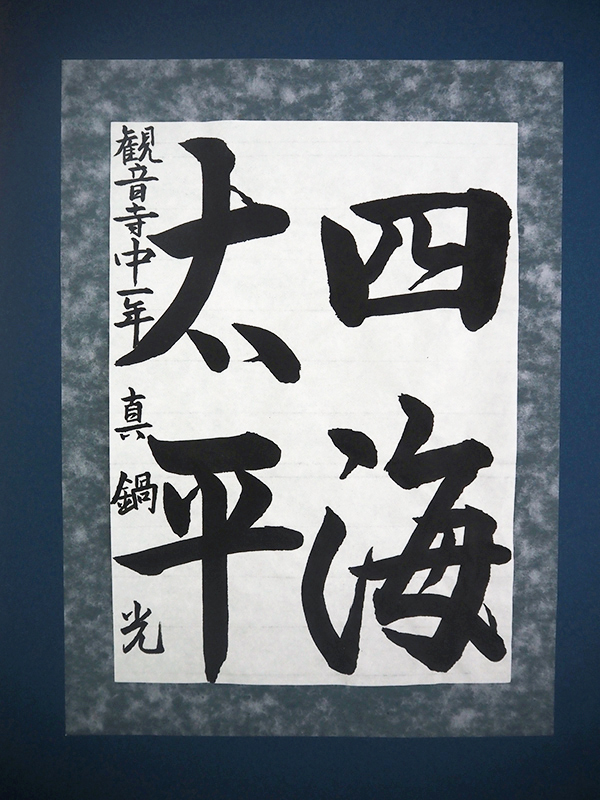 四海
太平
観音寺中一年 真鍋 光